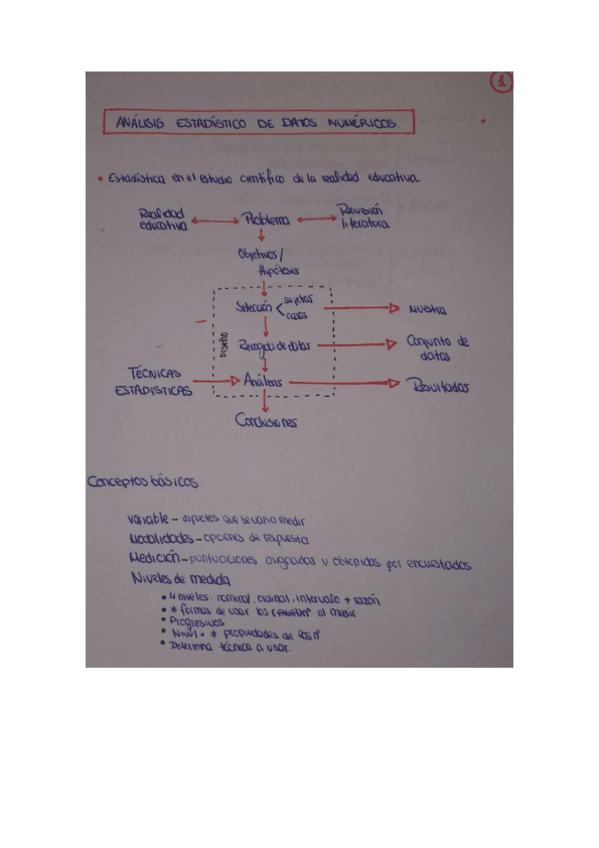 1
ANÁLISIS ESTADÍSTICO DE DATOS NUMÉRICOS.
• Estadística en el estudio científico de la realidad educativa
Realidad educativa
Problema
Revisión literatura
Objetivos/
Hipótesis
Selección sujetos
casos
Muestra
Diseño
Recogida de datos
Conjunto de
datos
TÉCNICAS
ESTADÍSTICAS
Análisis
Resultados
Conclusiones
Conceptos básicos
Variable - aspectos que se van a medir
Modalidades - opciones de respuesta
Medición - puntuaciones asignadas u obtenidas por encuestados
Niveles de medida
• 4 niveles: nominal, ordinal, intervalo + razón
• ≠ formas de usar los al medir
• Progresivos
• Nivel = ≠ propiedades de los nº
• Determina técnica a usar.